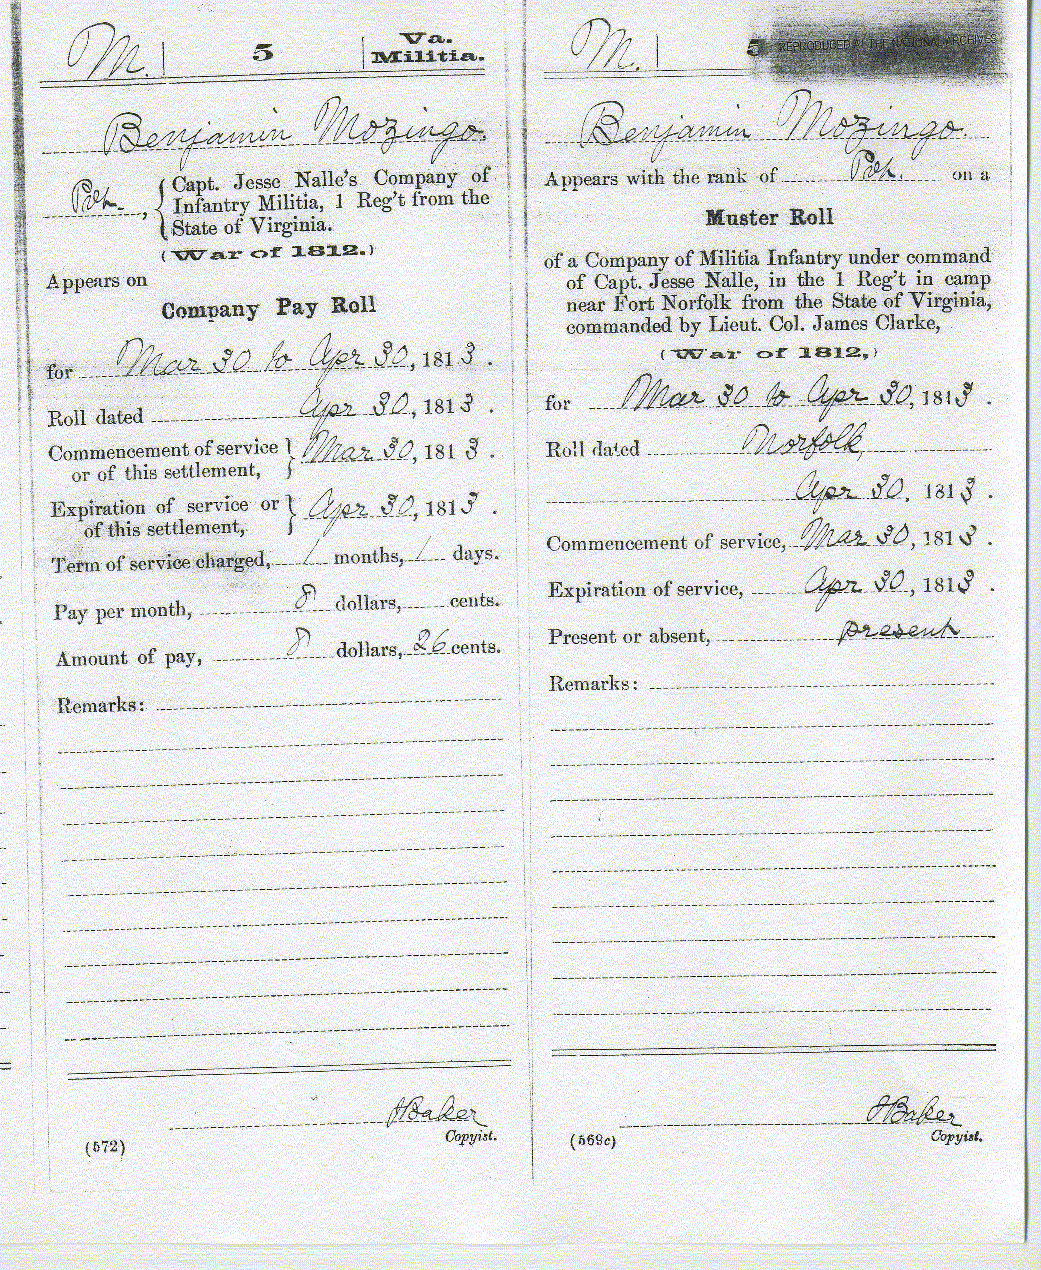 M. | 5 | Va. Militia.
Benjamin Mozingo.
Pvt., { Capt. Jesse Nalle's Company of
Infantry Militia, 1 Reg't from the
State of Virginia.
(War of 1812.)
Appears on
Company Pay Roll
for Mar 30 to Apr 30, 1813.
Roll dated Apr 30, 1813.
Commencement of service
or of this settlement, } Mar 30, 1813.
Expiration of service or
of this settlement, } Apr 30, 1813.
Term of service charged, 1 months, 1 days.
Pay per month, 8 dollars, cents.
Amount of pay, 8 dollars, 26 cents.
Remarks:
JBaker
Copyist.
(572)
M. | 5
REPRODUCED AT THE NATIONAL ARCHIVES
Benjamin Mozingo.
Appears with the rank of Pvt. on a
Muster Roll
of a Company of Militia Infantry under command
of Capt. Jesse Nalle, in the 1 Reg't in camp
near Fort Norfolk from the State of Virginia,
commanded by Lieut. Col. James Clarke,
(War of 1812,)
for Mar 30 to Apr 30, 1813.
Roll dated Norfolk,
Apr 30, 1813.
Commencement of service, Mar 30, 1813.
Expiration of service, Apr 30, 1813.
Present or absent, present
Remarks:
JBaker
Copyist.
(569c)